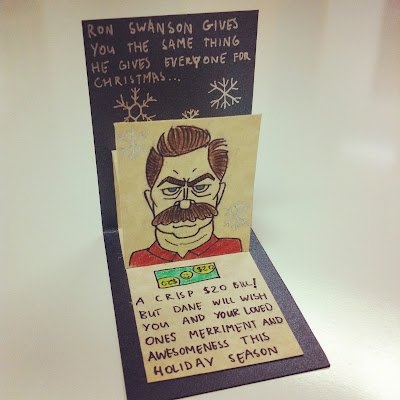 RON SWANSON GIVES
YOU THE SAME THING
HE GIVES EVERYONE FOR
CHRISTMAS...
$20 $20
A CRISP $20 BILL!
BUT DANE WILL WISH
YOU AND YOUR LOVED
ONES MERRIMENT AND
AWESOMENESS THIS
HOLIDAY SEASON